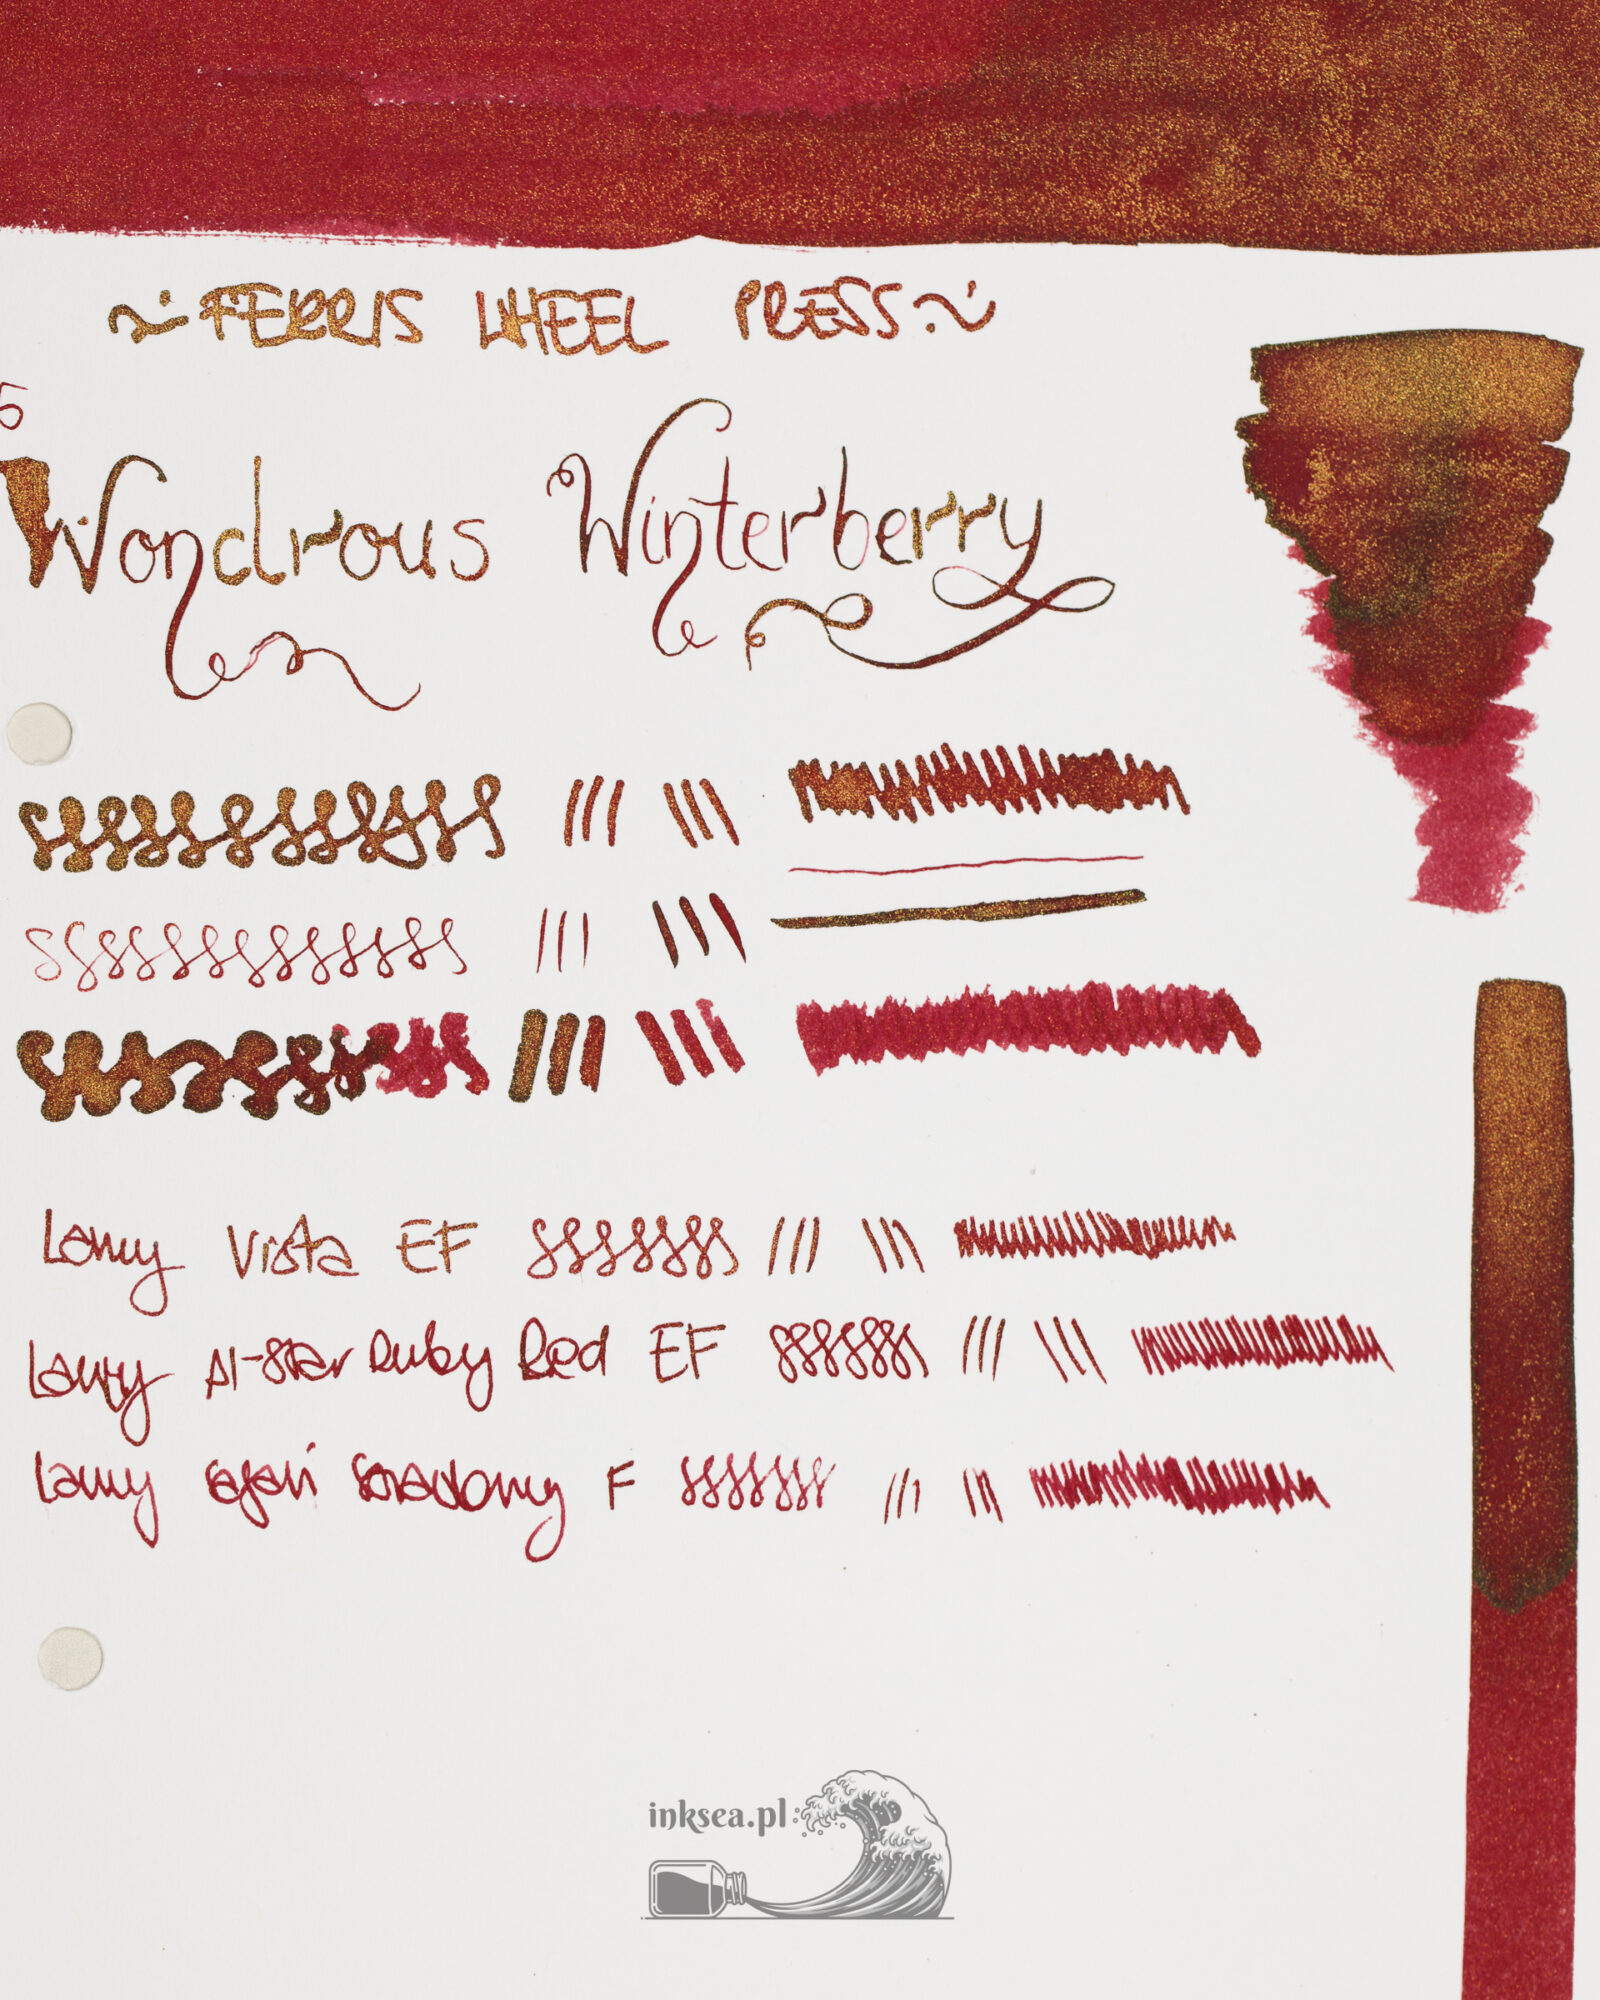 ~ FERRIS WHEEL PRESS ~
5
Wondrous Winterberry
Lamy Vista EF
Lamy Al-Star Ruby Red EF
Lamy Safari F
inksea.pl